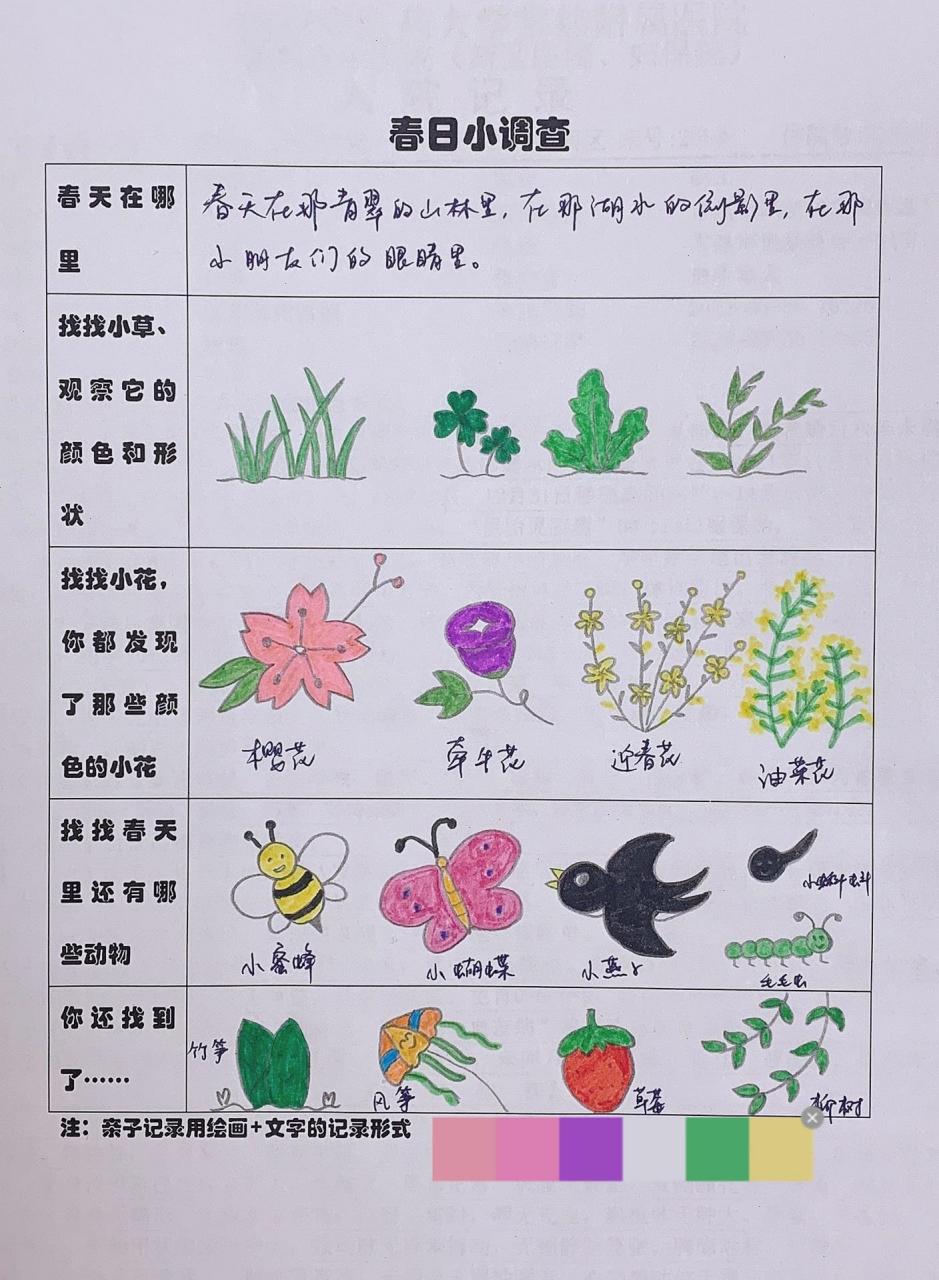 春日小调查
春天在哪
里
春天在那青翠的山林里,在那湖水的倒影里,在那
小朋友们的眼睛里。
找找小草、
观察它的
颜色和形
状
找找小花,
你都发现
了那些颜
色的小花
樱花
牵牛花
迎春花
油菜花
找找春天
里还有哪
些动物
小蜜蜂
小蝴蝶
小燕子
小蝌蚪
毛毛虫
你还找到
了……
竹笋
风筝
草莓
柳树
注:亲子记录用绘画+文字的记录形式